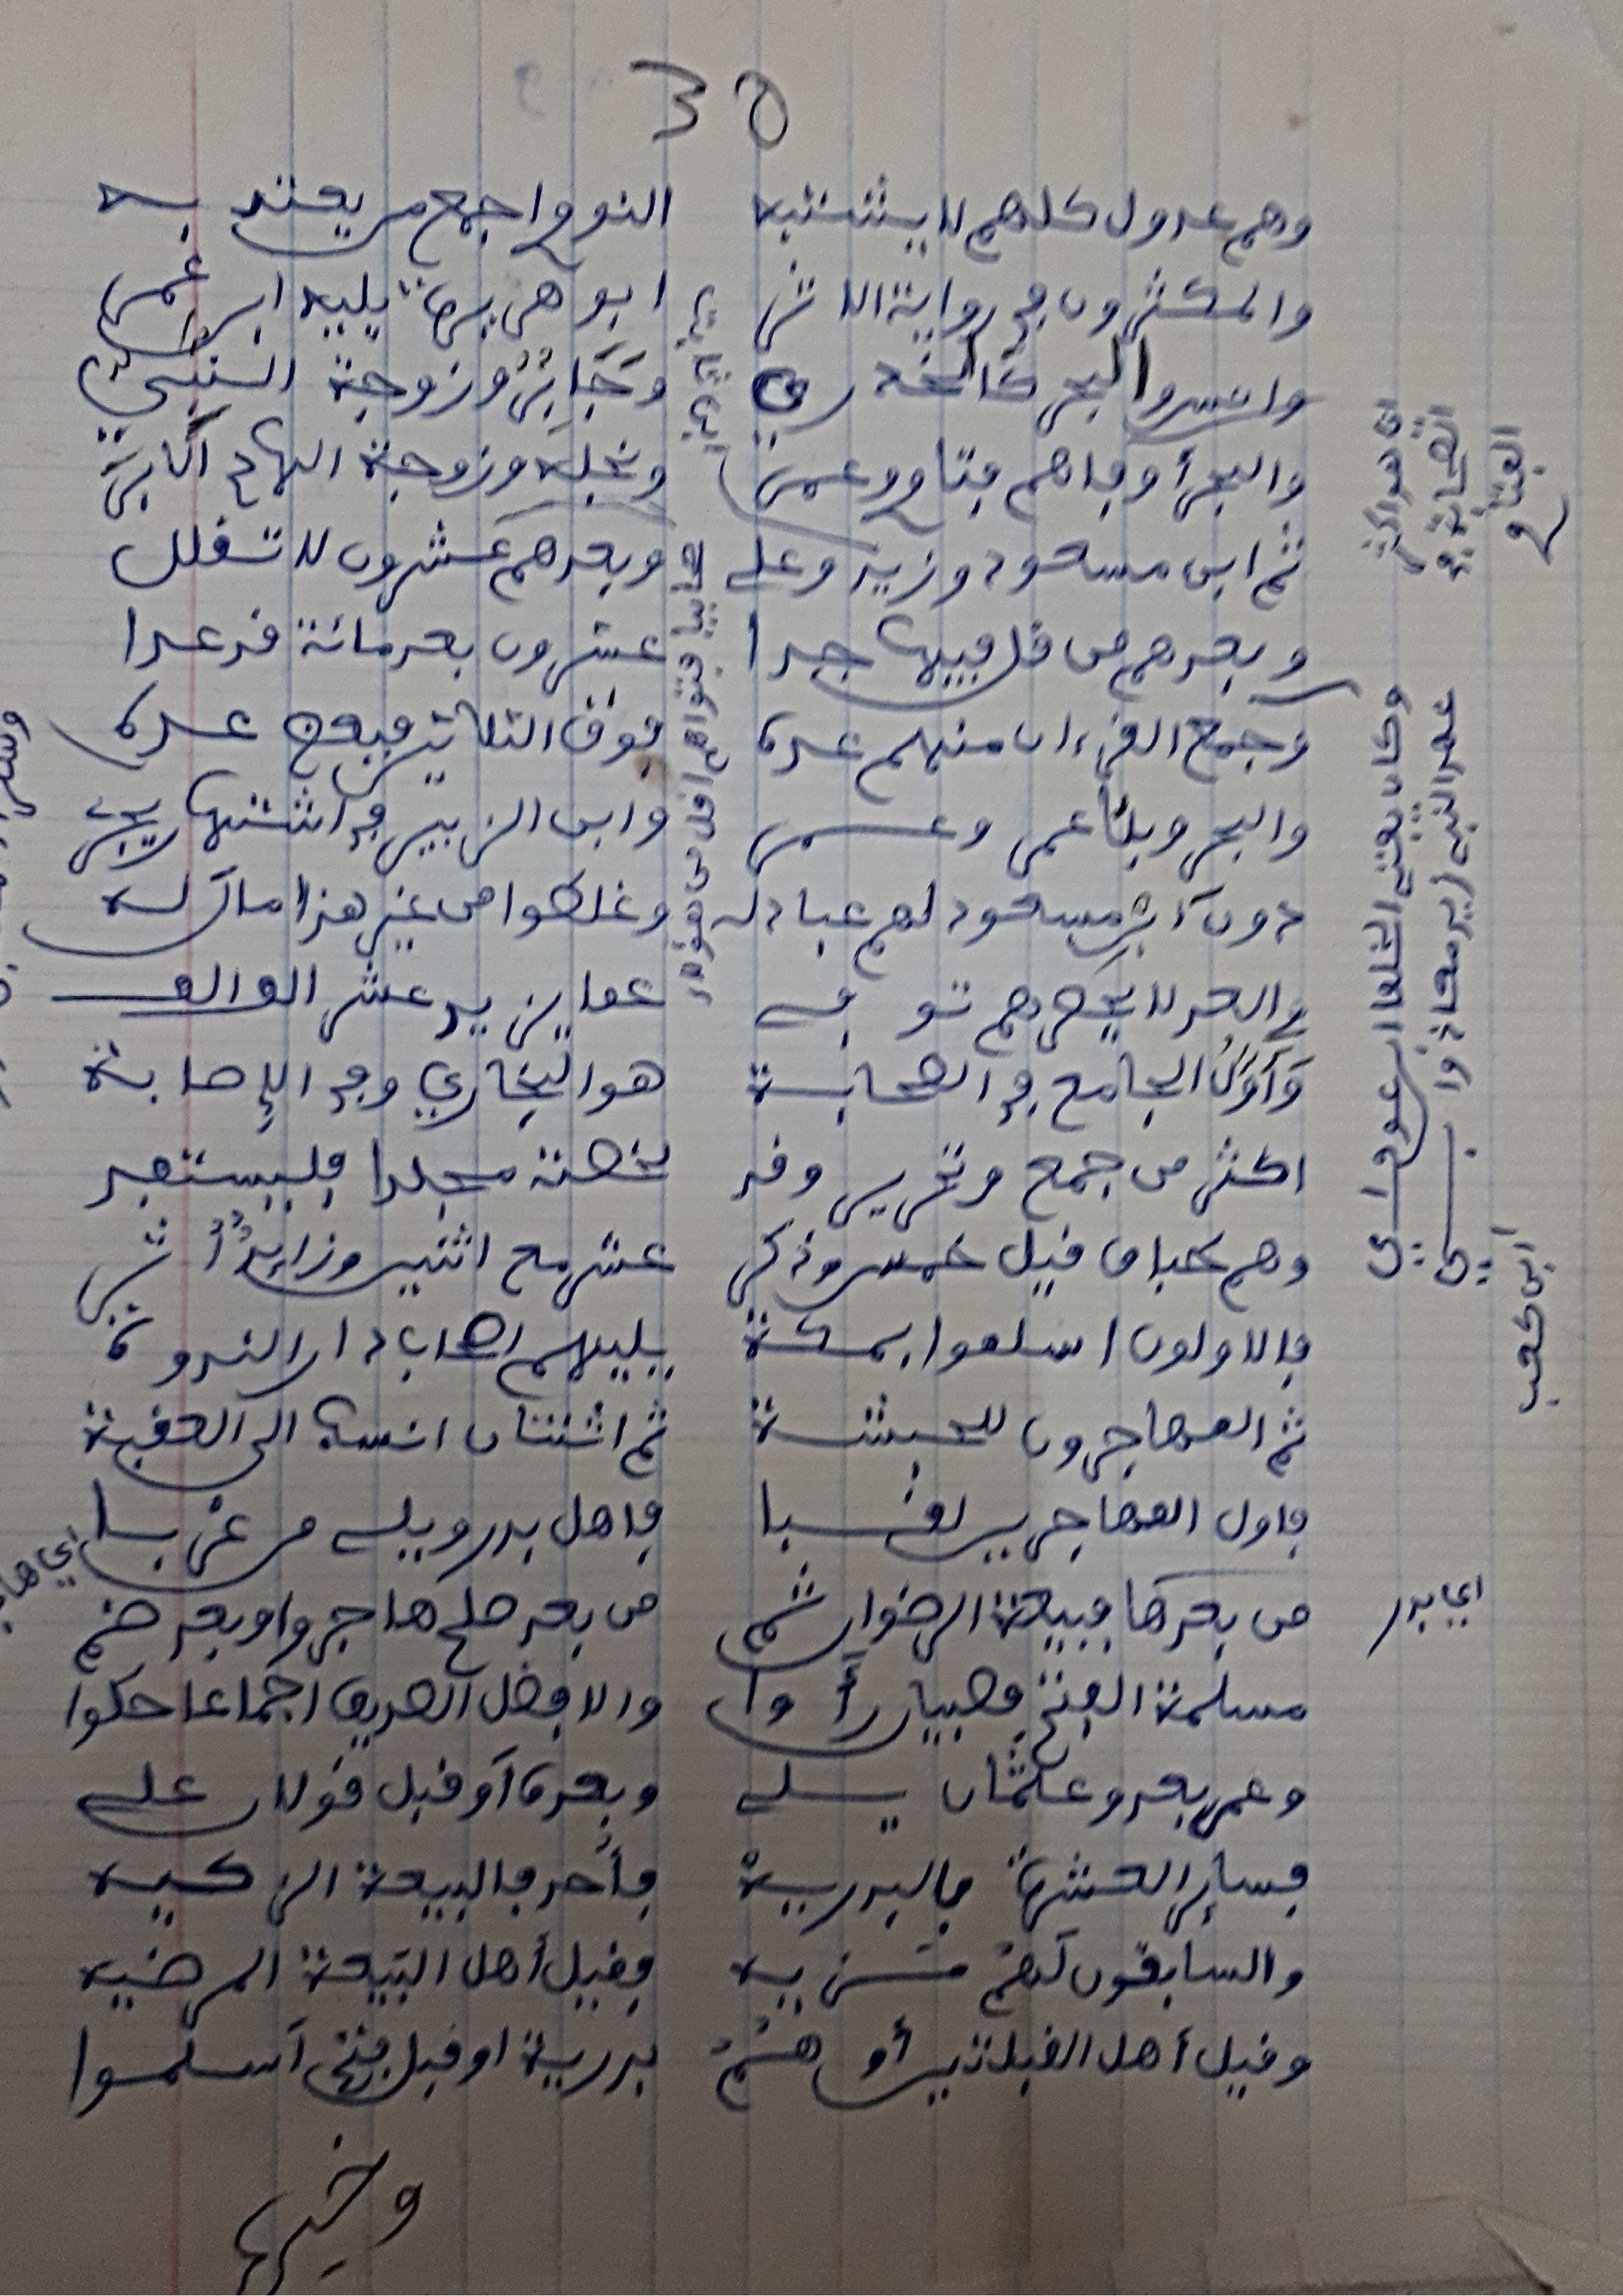 38
وهم عدول كلهم لا يشتبه النووي اجمع من يعتد به
والمكثرون في رواية الاثر ابو هريرة يليه ابن عمر
وانس والبحر كالخدري وجابر وزوجة النبي
والبحر أوفاهم فتاوى وعمر ونجله وزوجة الهادي الابر
ثم ابن مسعود وزيد وعلي وبعدهم عشرون لا تقلل
وبعدهم من قل فيها جدا عشرون بعد مائة قد عدا
وجمع القرءان منهم عده فوق الثلاثين فبعض عده
والبحر وابنا عمر وعمرو وابن الزبير في اشتهار يجري
دون ابن مسعود لهم عبادله وغلطوا من غير هذا مال له
والعد لا يحصرهم توفي عما يزيد عشر الف الف
وأول الجامع في الصحابة هو البخاري وفي الإصابة
اكثر من جمع وتحرير وقد لخصته مجلدا فليستفد
وهم طباق قيل خمس وذكر عشر مع اثنين وزايد أثر
فالاولون اسلموا بمكة يليهم اصحاب دار الندوة
ثم المهاجرون للحبشة ثم اثنتان انسب الى العقبة
فاول المهاجرين لقبا فاهل بدر ويلي من غربا
من بعدها فبيعة الرضوان ثم من بعد صلح هاجروا وبعد ضم
مسلمة الفتح فصبيان رأوا والافضل الصديق اجماعا حكوا
وعمر بعد وعثمان يلي وبعده أو قبل قولان علي
فسائر العشرة فالبدرية فأحد فالبيعة الزكيه
والسابقون لهم مزيه فقيل أهل البيعة المرضيه
وقيل أهل القبلتين أو هم بدرية او قبل فتح أسلموا
وخيرها
اي بدر
وكان يفتي الخلفا
ابن كعب